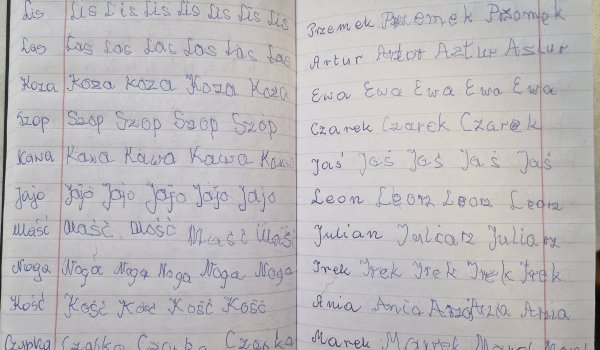 Lis Lis Lis Lis Lis Lis Lis Lis
Las Las Las Las Las Las Las
Koza Koza Koza Koza Koza
Szop Szop Szop Szop Szop
Kawa Kawa Kawa Kawa Kawa
Jajo Jajo Jajo Jajo Jajo Jajo
Maść Maść Mość Maść Maść
Noga Noga Noga Noga Noga Noga
Kość Kość Kość Kość Kość
Czapka Czapka Czapka Czapka
Przemek Przemek Przomek
Artur Artor Aztur Astur
Ewa Ewa Ewa Ewa Ewa
Czarek Czarek Czarek
Jaś Jaś Jaś Jaś Jaś
Leon Leorz Leorz Leorz
Julian Juliarz Juliarz
Irek Irek Irek Irek Irek
Ania Ania Arzia Arzia Arzia
Marek Marek Marek Marek